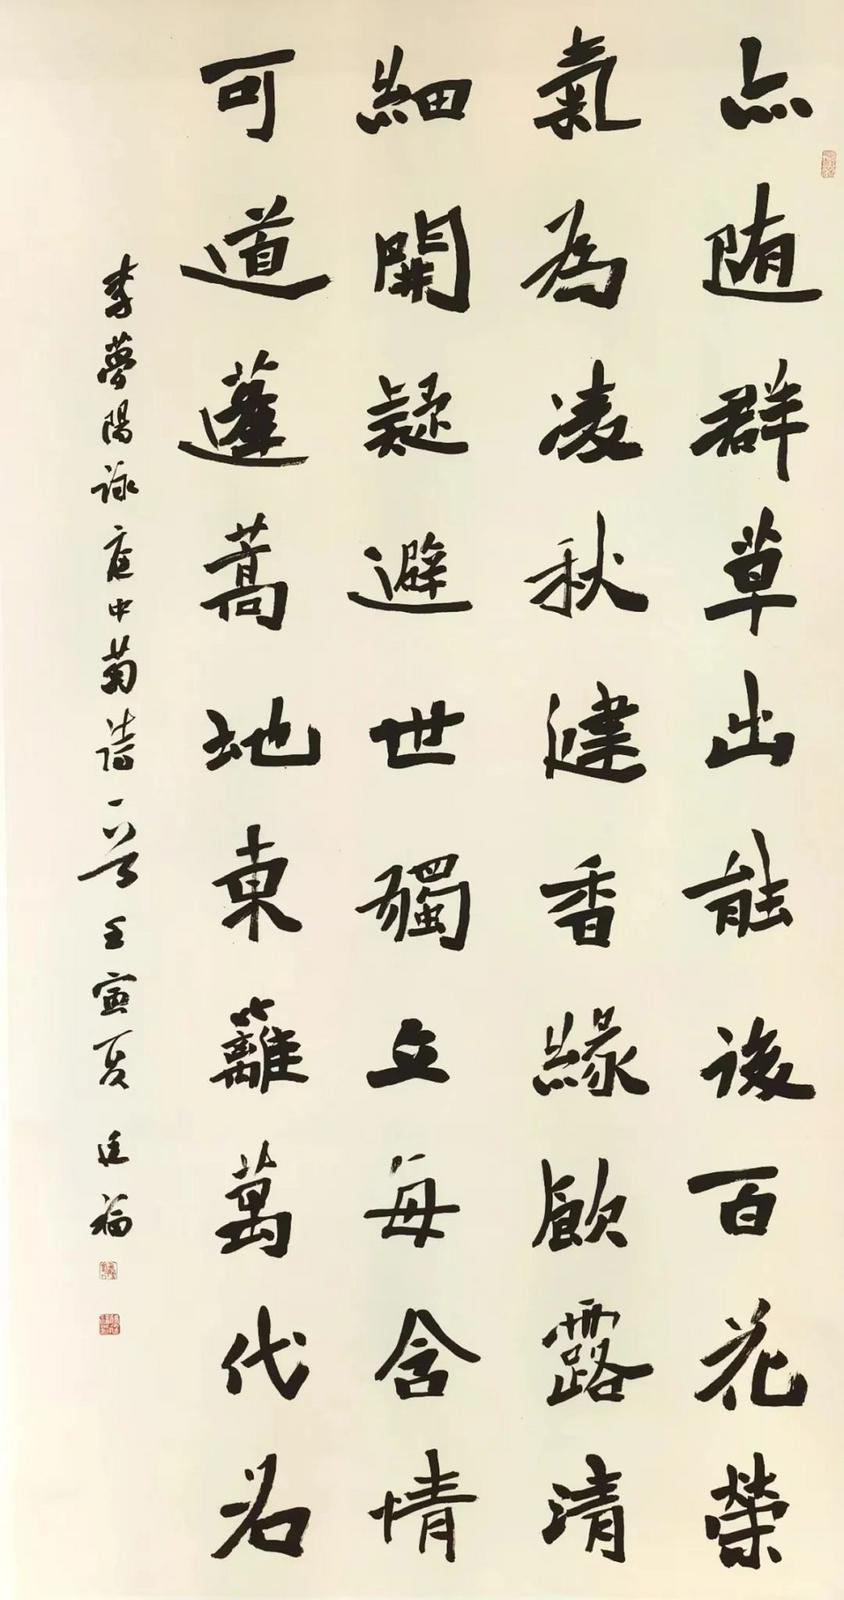 亦随群草出能後百花榮
氣為凌秋健香緣飲露清
細開疑避世獨立每含情
可道蓬蒿地東籬萬代名
李夢陽詠庭中菊詩一首壬寅夏廷福